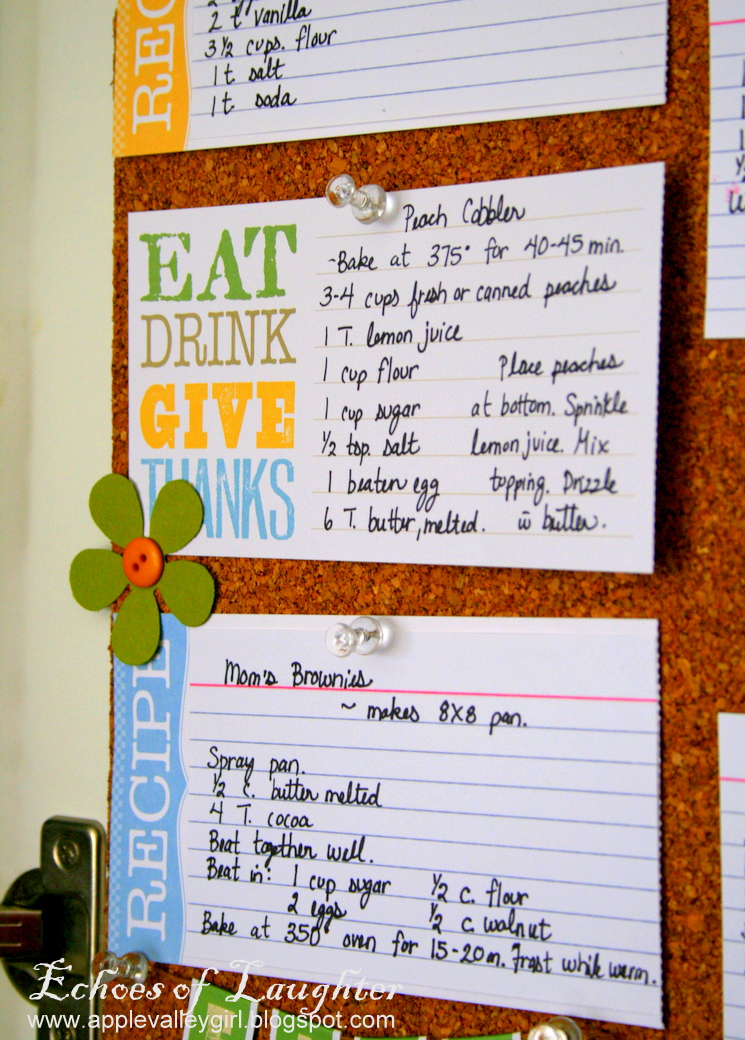 REC
2 t vanilla
3 1/2 cups. flour
1 t salt
1 t. soda
EAT
DRINK
GIVE
THANKS
Peach Cobbler
~Bake at 375° for 40-45 min.
3-4 cups fresh or canned peaches
1 T. lemon juice
1 cup flour
1 cup sugar
1/2 tsp. salt
1 beaten egg
6 T. butter, melted.
Place peaches
at bottom. Sprinkle
lemon juice. Mix
topping. Drizzle
w̄ butter.
RECIPE
Mom's Brownies
~ makes 8X8 pan.
Spray pan.
1/2 c. butter melted
4 T. cocoa
Beat together well.
Beat in: 1 cup sugar 1/2 c. flour
2 eggs 1/2 c. walnut
Bake at 350° oven for 15-20 m. Frost while warm.
Echoes of Laughter
www.applevalleygirl.blogspot.com